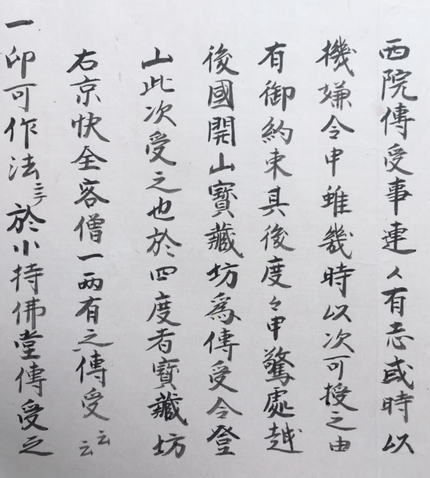 西院傳受事連々有志或時以
機嫌令申雖幾時以次可授之由
有御約束其後度々申驚處越
後國開山寶藏坊為傳受令登
山此次受之也於四度者寶藏坊
右京快全客僧一両有之傳受云云
一印可作法二字於小持佛堂傳受之